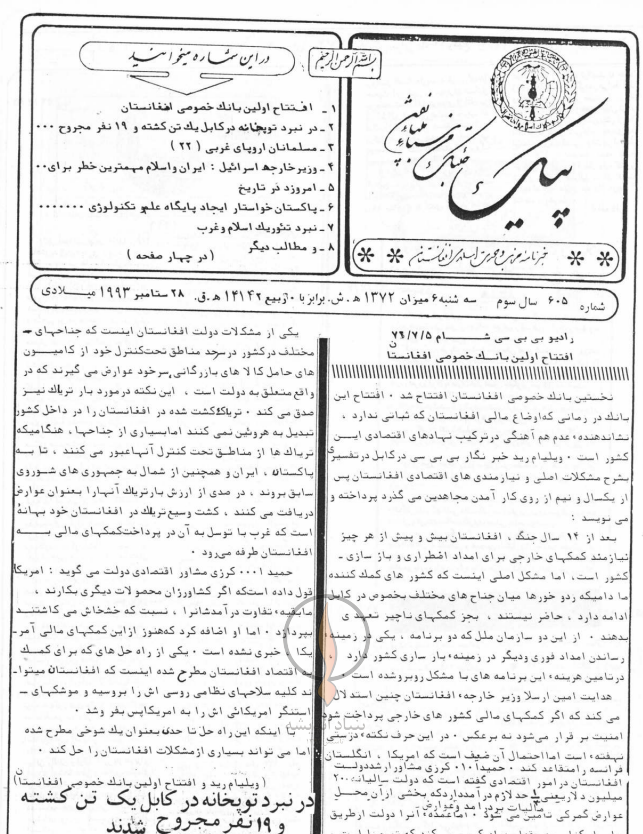 بسم الله الرحمن الرحیم
در این شماره میخوانید
۱ - افتتاح اولین بانک خصوصی افغانستان
۲ - در نبرد توپخانه در کابل یک تن کشته و ۱۹ نفر مجروح ۰۰۰
۳ - مسلمانان اروپای غربی ( ۲۲ )
۴ - وزیر خارجه اسرائیل : ایران و اسلام مهمترین خطر برای ۰۰
۵ - امروز در تاریخ
۶ - پاکستان خواستار ایجاد پایگاه علم و تکنولوژی ۰۰۰۰۰۰۰
۷ - نبرد تئوریک اسلام و غرب
۸ - و مطالب دیگر
( در چهار صفحه )
پیک
خبرنامه حزب وحدت اسلامی افغانستان
شماره ۶۰۵ سال سوم سه شنبه ۶ میزان ۱۳۷۲ ه‍ . ش . برابر با ۱۰ ربیع ۲ ۱۴۱۴ ه‍ . ق . ۲۸ ستامبر ۱۹۹۳ میلادی
رادیو بی بی سی شام ۷۲/۷/۵
افتتاح اولین بانک خصوصی افغانستان
نخستین بانک خصوصی افغانستان افتتاح شد ۰ افتتاح این
بانک در زمانی که اوضاع مالی افغانستان که ثباتی ندارد ،
نشاندهنده عدم هم آهنگی در ترکیب نهادهای اقتصادی این
کشور است ۰ ویلیام رید خبر نگار بی بی سی در کابل در تفسیری
بشرح مشکلات اصلی و نیازمندی های اقتصادی افغانستان پس
از یکسال و نیم از روی کار آمدن مجاهدین می گذرد پرداخته و
می نویسد :
بعد از ۱۴ سال جنگ ، افغانستان بیش و پیش از هر چیز
نیازمند کمکهای خارجی برای امداد اضطراری و باز سازی -
کشور است ، اما مشکل اصلی اینست که کشور های کمک کننده
ما دامیکه زدو خورها میان جناح های مختلف بخصوص در کابل
ادامه دارد ، حاضر نیستند ، بجز کمکهای ناچیز تعهدی
بدهند ۰ از این دو سازمان ملل که دو برنامه ، یکی در زمینه
رساندن امداد فوری و دیگر در زمینه باز سازی کشور دارد
در تامین هزینه این برنامه های با مشکل روبرو شده است ۰
هدایت امین ارسلا وزیر خارجه افغانستان چنین استدلال
می کند که اگر کمکهای مالی کشور های خارجی پرداخت شود
امنیت بر قرار می شود نه برعکس ۰ در این حرف نکته درستی
نهفته است اما احتمال آن ضعیف است که امریکا ، انگلستان
فرانسه را متقاعد کند ۰ حمید ۰۱۰۰ کرزی مشاور ارشد دولت
افغانستان در امور اقتصادی گفته است که دولت سالیانه ۲۰۰
میلیون دلار یعنی حد لازم در آمد دارد که بخشی از آن محصل
مالیات بر درآمد و عوارض
عوارض گمرکی تامین می شود ۰ اما عمده آنرا دولت از طریق
یکی از مشکلات دولت افغانستان اینست که جناحهای -
مختلف در کشور در سرحد مناطق تحت کنترل خود از کامیون
های حامل کالا های بازرگانی سرخود عوارض می گیرند که در
واقع متعلق به دولت است ، این نکته در مورد بار تریاک نیز
صدق می کند ۰ تریاک کشت شده در افغانستان را در داخل کشور
تبدیل به هروئین نمی کنند اما بسیاری از جناحها ، هنگامیکه
تریاک ها از مناطق تحت کنترل آنها عبور می کنند ، تا به
پاکستان ، ایران و همچنین از شمال به جمهوری های شوروی
سابق بروند ، در صدی از ارزش بار تریاک آنها را بعنوان عوارض
دریافت می کنند ، کشت وسیع تریاک در افغانستان خود بهانه
است که غرب با توسل به آن در پرداخت کمکهای مالی به
افغانستان طرفه می رود ۰
حمید ۰۰۰۱ کرزی مشاور اقتصادی دولت می گوید : امریکا
قول داده است که اگر کشاورزان محصولات دیگری بکارند ،
مابقیه تفاوت درآمدشانرا ، نسبت که خشخاش می کاشتند
بپردازد ۰ اما او اضافه کرد که هنوز از این کمکهای مالی آمر-
یکا - خبری نشده است ۰ یکی از راه حل های که برای کمک
به اقتصاد افغانستان مطرح شده اینست که افغانستان میتوا-
ند کلیه سلاحهای نظامی روسی اش را بروسیه و موشکهای -
استنگر امریکائی اش را به امریکا پس بفروشد ۰
با اینکه این راه حل تا حدی بعنوان یک شوخی مطرح شده
اما می تواند بسیاری از مشکلات افغانستان را حل کند ۰
( ویلیام رید و افتتاح اولین بانک خصوصی افغانستان )
در نبرد توپخانه در کابل یک تن کشته
و ۱۹ نفر مجروح شدند
بنیاد اندیشه